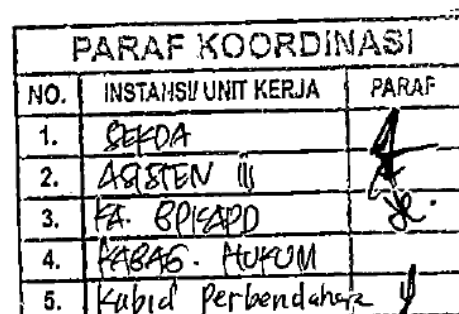 PARAF KOORDINASI
NO. INSTANSI/ UNIT KERJA PARAF
1. SEKDA
2. ASISTEN III
3. KA. BPKAPD
4. KABAG. HUKUM
5. Kabid Perbendahara